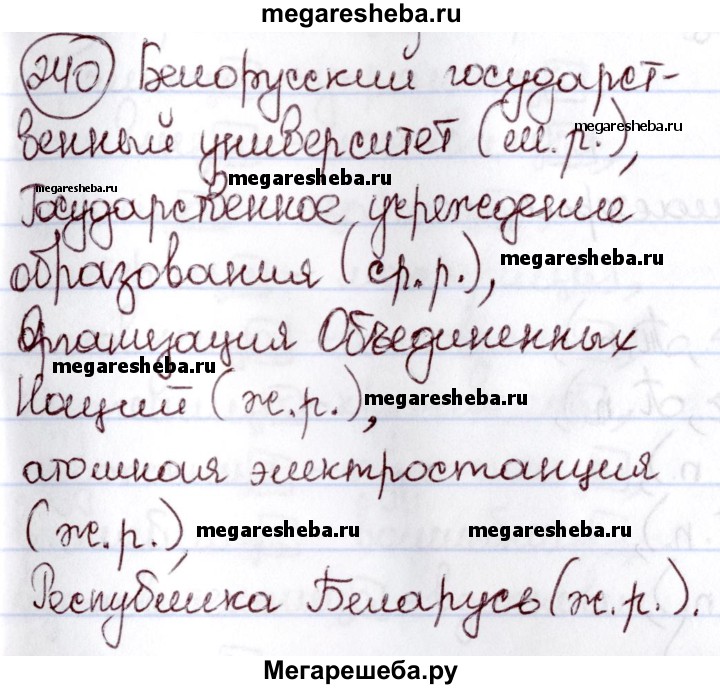 megaresheba.ru
240 Белорусский государст-
венный университет (м.р.),
megaresheba.ru
megaresheba.ru
megaresheba.ru
Государственное учреждение
образования (ср.р.),
megaresheba.ru
Организация Объединенных
megaresheba.ru
Наций (ж.р.),
megaresheba.ru
атомная электростанция
(ж.р.),
megaresheba.ru
megaresheba.ru
Республика Беларусь (ж.р.).
Мегарешеба.ру